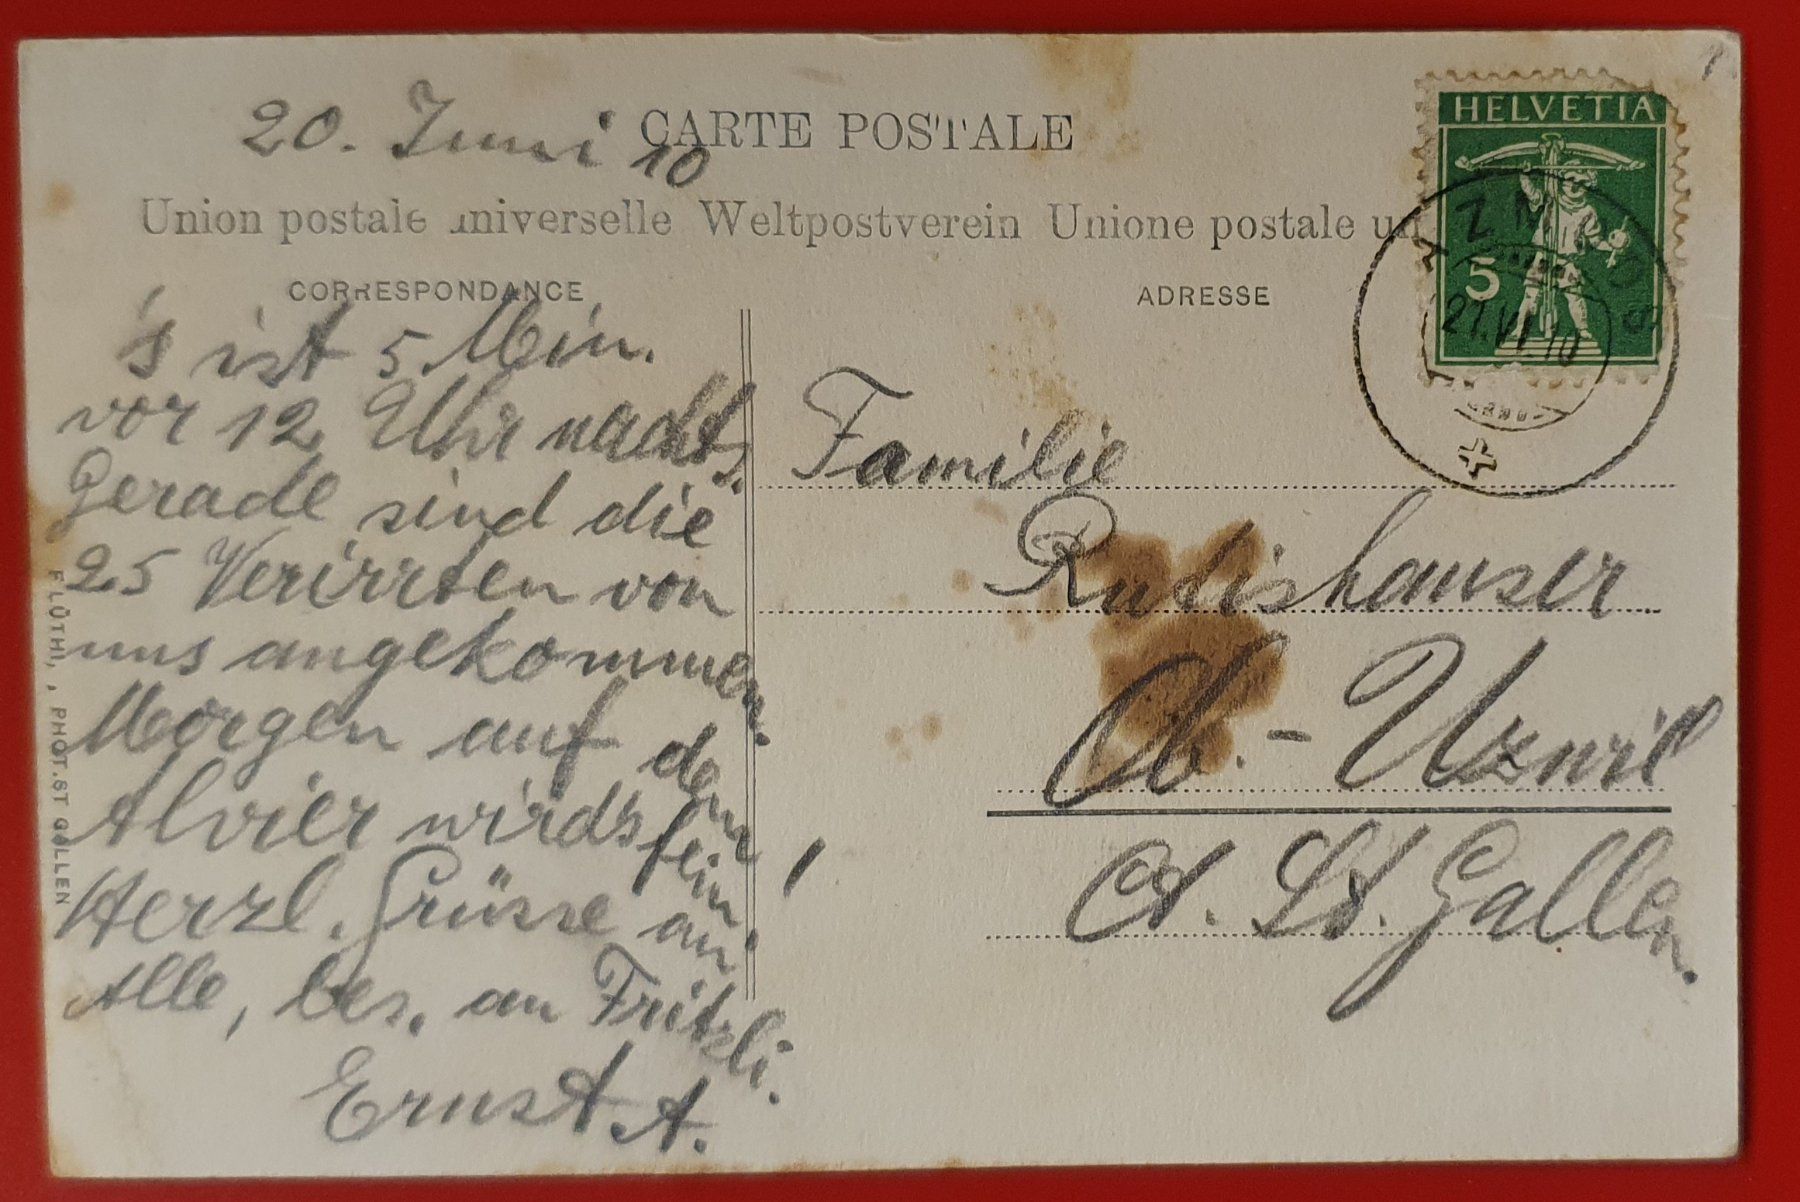 20. Juni 10
CARTE POSTALE
Union postale universelle Weltpostverein Unione postale un
CORRESPONDANCE
's ist 5 Min.
vor 12 Uhr nachts.
Gerade sind die
25 Verirrten von
uns angekommen.
Morgen auf dem
Alvier wird's fein!
Herzl. Grüsse an
Alle, bes. an Fritzli.
Ernst A.
FLÜTHI, , PHOT. ST GALLEN
ADRESSE
Familie
Rutishauser
Ob.- Uzwil
Ct. St. Gallen.
HELVETIA
5
AZMOOS
21.VI.10